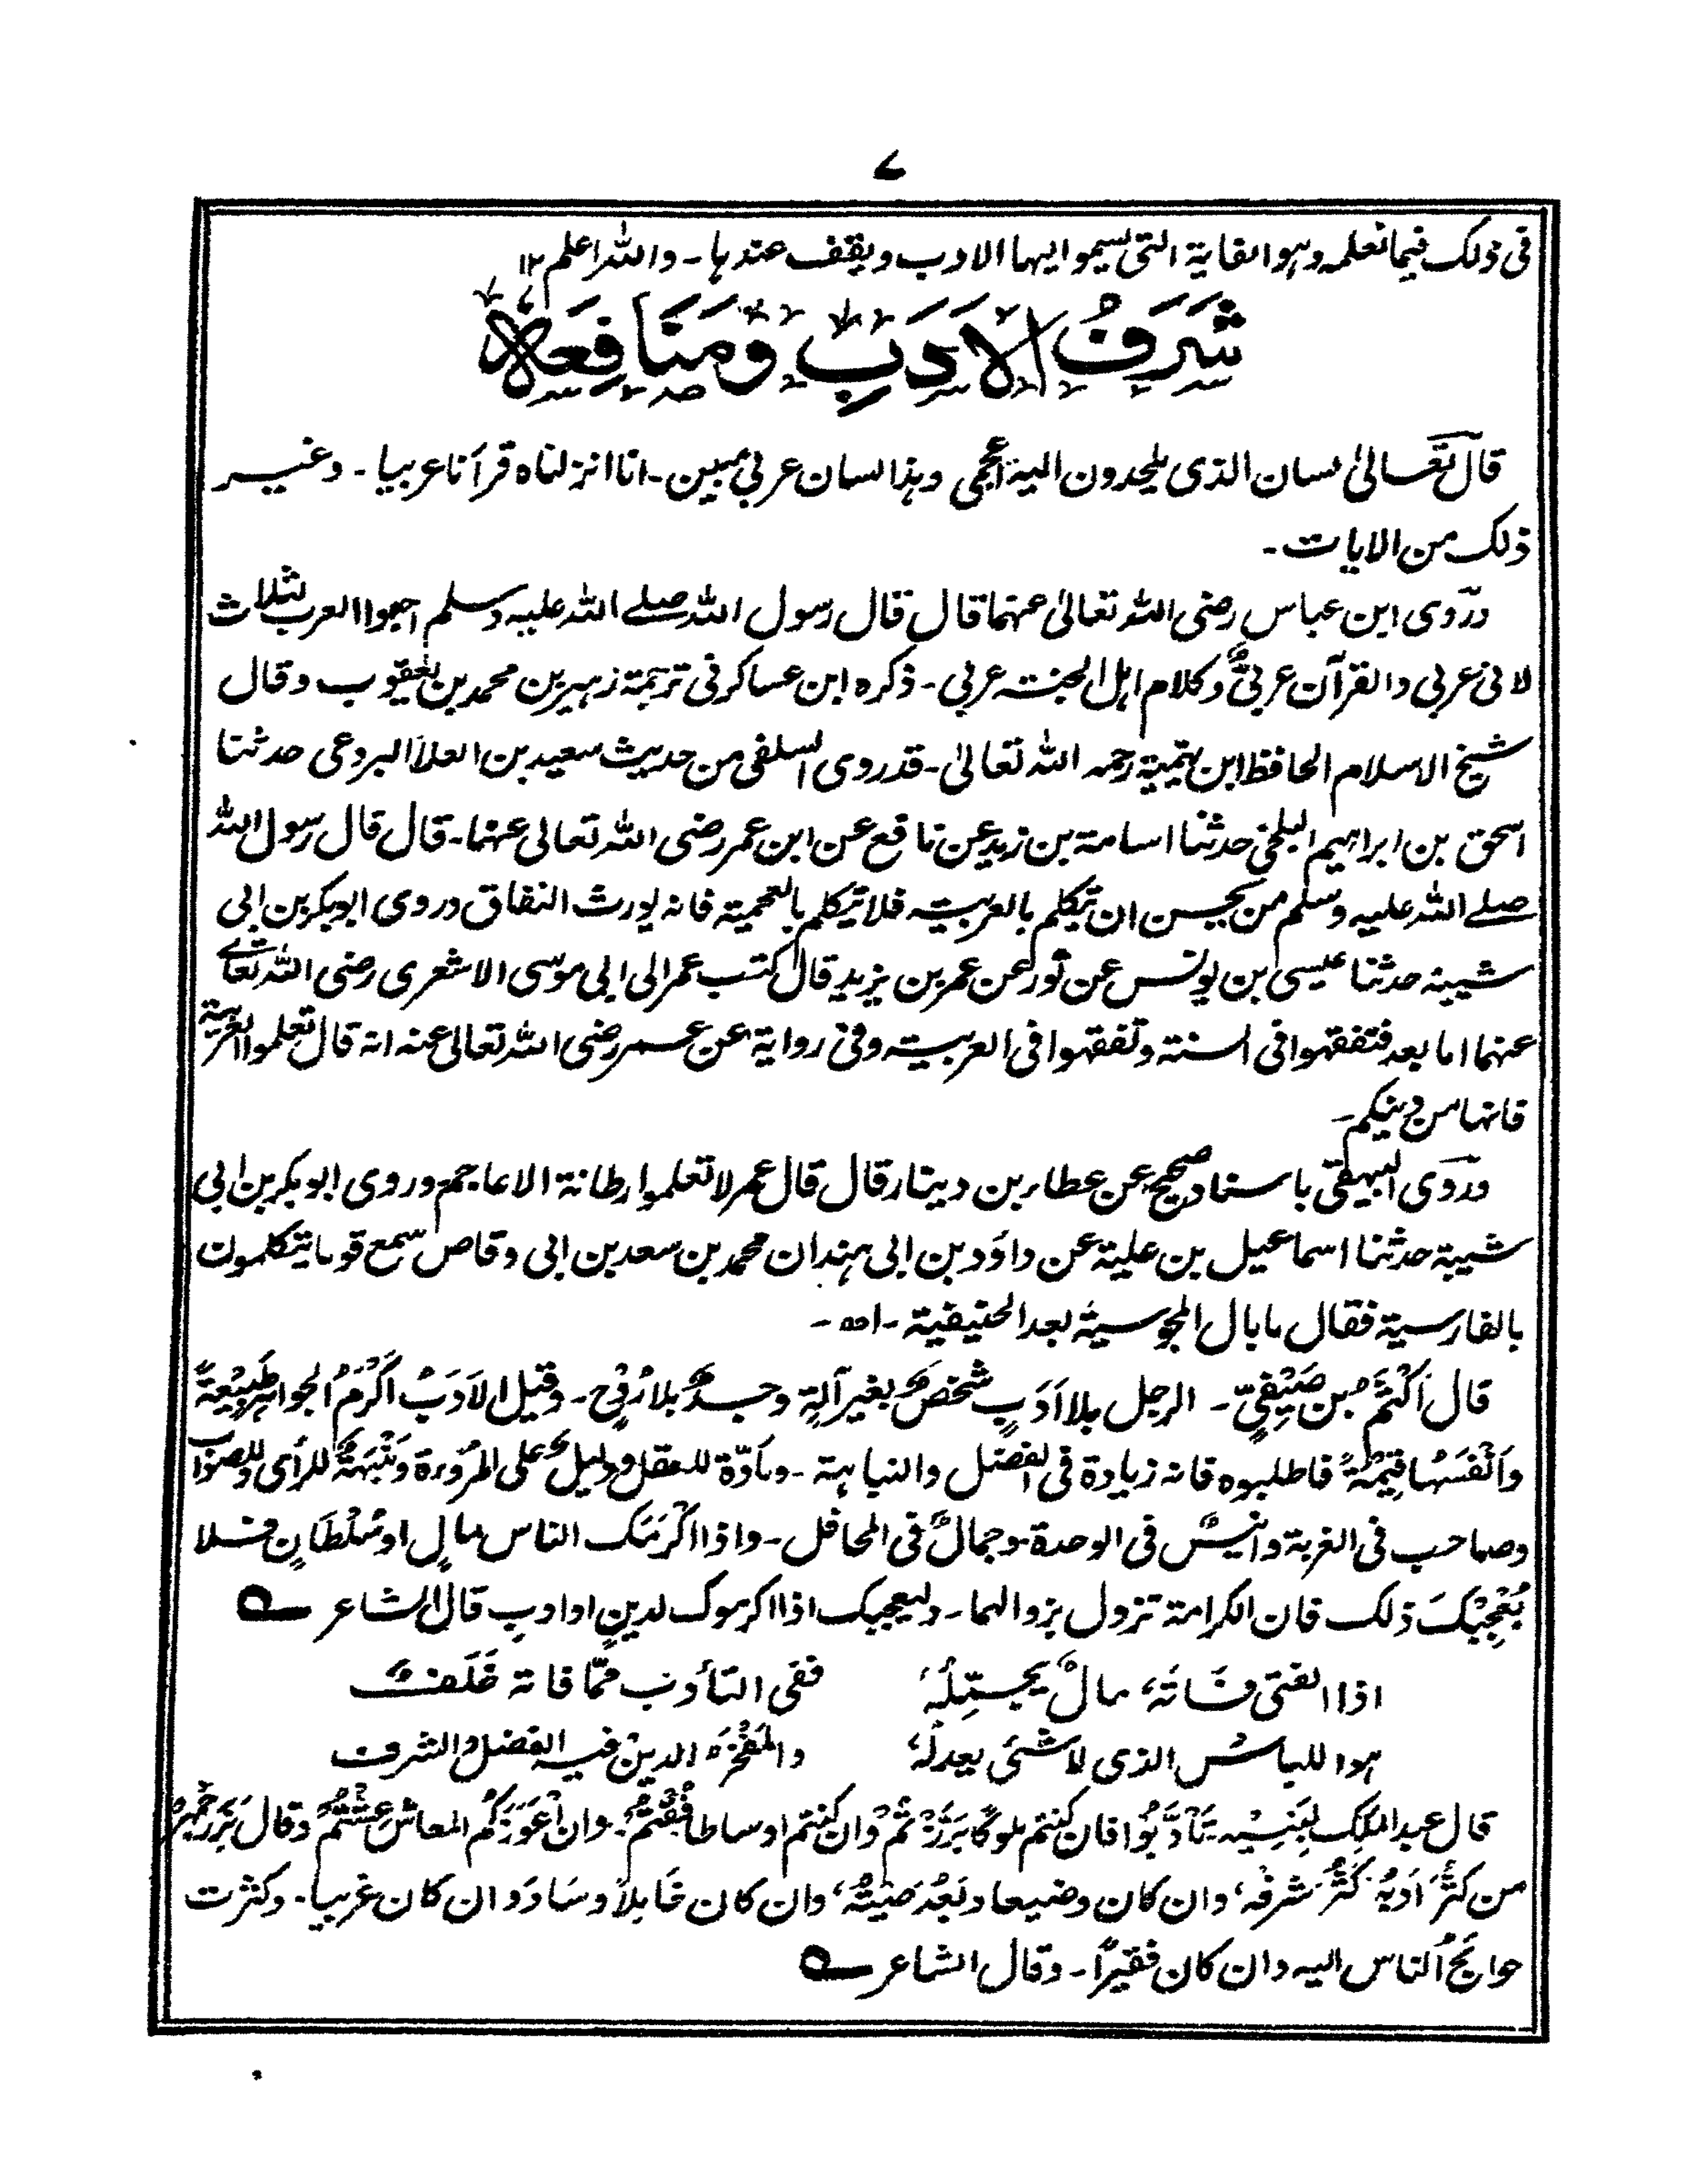 ۷
فی ذلک فیما تعلمہ وہو الغایۃ التی یسموا ایہا الادب ویقف عندہا ۔ واللہ اعلم ۱۲
شَرَفُ الاَدَبِ وَمَنَافِعَہٗ
قال تعالیٰ لسان الذی یلحدون الیہ اعجمی وہذا لسان عربی مبین ۔ انا انزلناہ قرآنا عربیا ۔ وغیر
ذلک من الایات ۔
وروی ابن عباس رضی اللہ تعالیٰ عنہما قال قال رسول اللہ صلے اللہ علیہ وسلم احبوا العرب لثلاث
لانی عربی والقرآن عربیٌ وکلام اہل الجنتہ عربی ۔ ذکرہ ابن عساکر فی ترجمۃ زہیر بن محمد بن یعقوب وقال
شیخ الاسلام الحافظ ابن تیمیۃ رحمہ اللہ تعالیٰ ۔ قد روی السلفی من حدیث سعید بن العلاً البردعی حدثنا
اسحق بن ابراہیم البلخی حدثنا اسامۃ بن زید عن نافع عن ابن عمر رضی اللہ تعالی عنہما ۔ قال قال رسول اللہ
صلے اللہ علیہ وسلم من یحسن ان یتکلم بالعربیتہ فلا یتکلم بالعجمیۃ فانہ یورث النفاق وروی ابوبکر بن ابی
شیبہ حدثنا عیسی بن یونس عن ثور عن عمر بن یزید قال کتب عمر الی ابی موسی الاشعری رضی اللہ تعالے
عنہما اما بعد فتفقہوا فی السنتہ وتفقہوا فی العربیتہ وفی روایۃ عن عمر رضی اللہ تعالی عنہ انہ قال تعلموا العربیۃ
فانہا من دینکم ۔
وروی البیہقی باسناد صحیح عن عطاء بن دینار قال قال عمر لا تعلموا رطانۃ الاعاجم وروی ابوبکر بن ابی
شیبۃ حدثنا اسماعیل بن علیۃ عن داوٗد بن ابی ہندان محمد بن سعد بن ابی وقاص سمع قوما یتکلمون
بالفارسیۃ فقال مابال المجوسیۃ بعد الحنیفیۃ ۔ اھ ۔
قال اَکْثَمُ بن صَیْفِیّ ۔ الرجل بلا اَدَبٍ شخصٌ بغیر آلۃٍ وجسدٌ بلا رُوْحٍ ۔ وقیل الاَدَبُ اَکْرَمُ الجواہر طَبِیْعَۃً
واَنْفَسُہَا قِیْمَۃً فاطلبوہ فانہ زیادۃ فی الفضل والنباہۃ ۔ ومادّۃ للعقل ودلیلٌ علی المرُوءۃ وَمَنْبَہَۃٌ للرأی والصواب
وصاحب فی الغربۃ وانیسٌ فی الوحدۃ وجمالٌ فی المحافل ۔ واذا اکْرَمَکَ الناس مالٍ او سُلْطَانٍ فلا
یُعْجِبْکَ ذلک فان الکرامۃ تزول بزوالہما ۔ ولیعجبک اذا اکرموک لدینٍ او ادبٍ قال الشاعر
اذا الفتی فَاتَہٗ مالٌ یُجَمِّلُہٗ ففی التأدب ممّا فاتہ خَلَفٌ
ہو اللباسُ الذی لا شئی یعدلہٗ والمَفْخَرُ الدینُ فیہ الفضل والشرف
قال عبد الملک لِبَنِیْہِ تَأَدَّبُوْا فان کنتم ملوکًا بَرَّزْتُمْ وان کنتم اوساطا فُقْتُمْ ۔ وان اَعْوَزَکُمُ المعاشُ عِشْتُمْ وقال بَزَرْجَمِہْرُ
من کَثُرَ اَدَبُہٗ کَثُرَ شرفُہ، وان کان وضیعا وبَعُدَ صَیْتُہٗ، وان کان خَامِلاً وسَادَ وان کان غریبا ۔ وکثرت
حوائجُ الناس الیہ وان کان فقیرًا ۔ وقال الشاعر